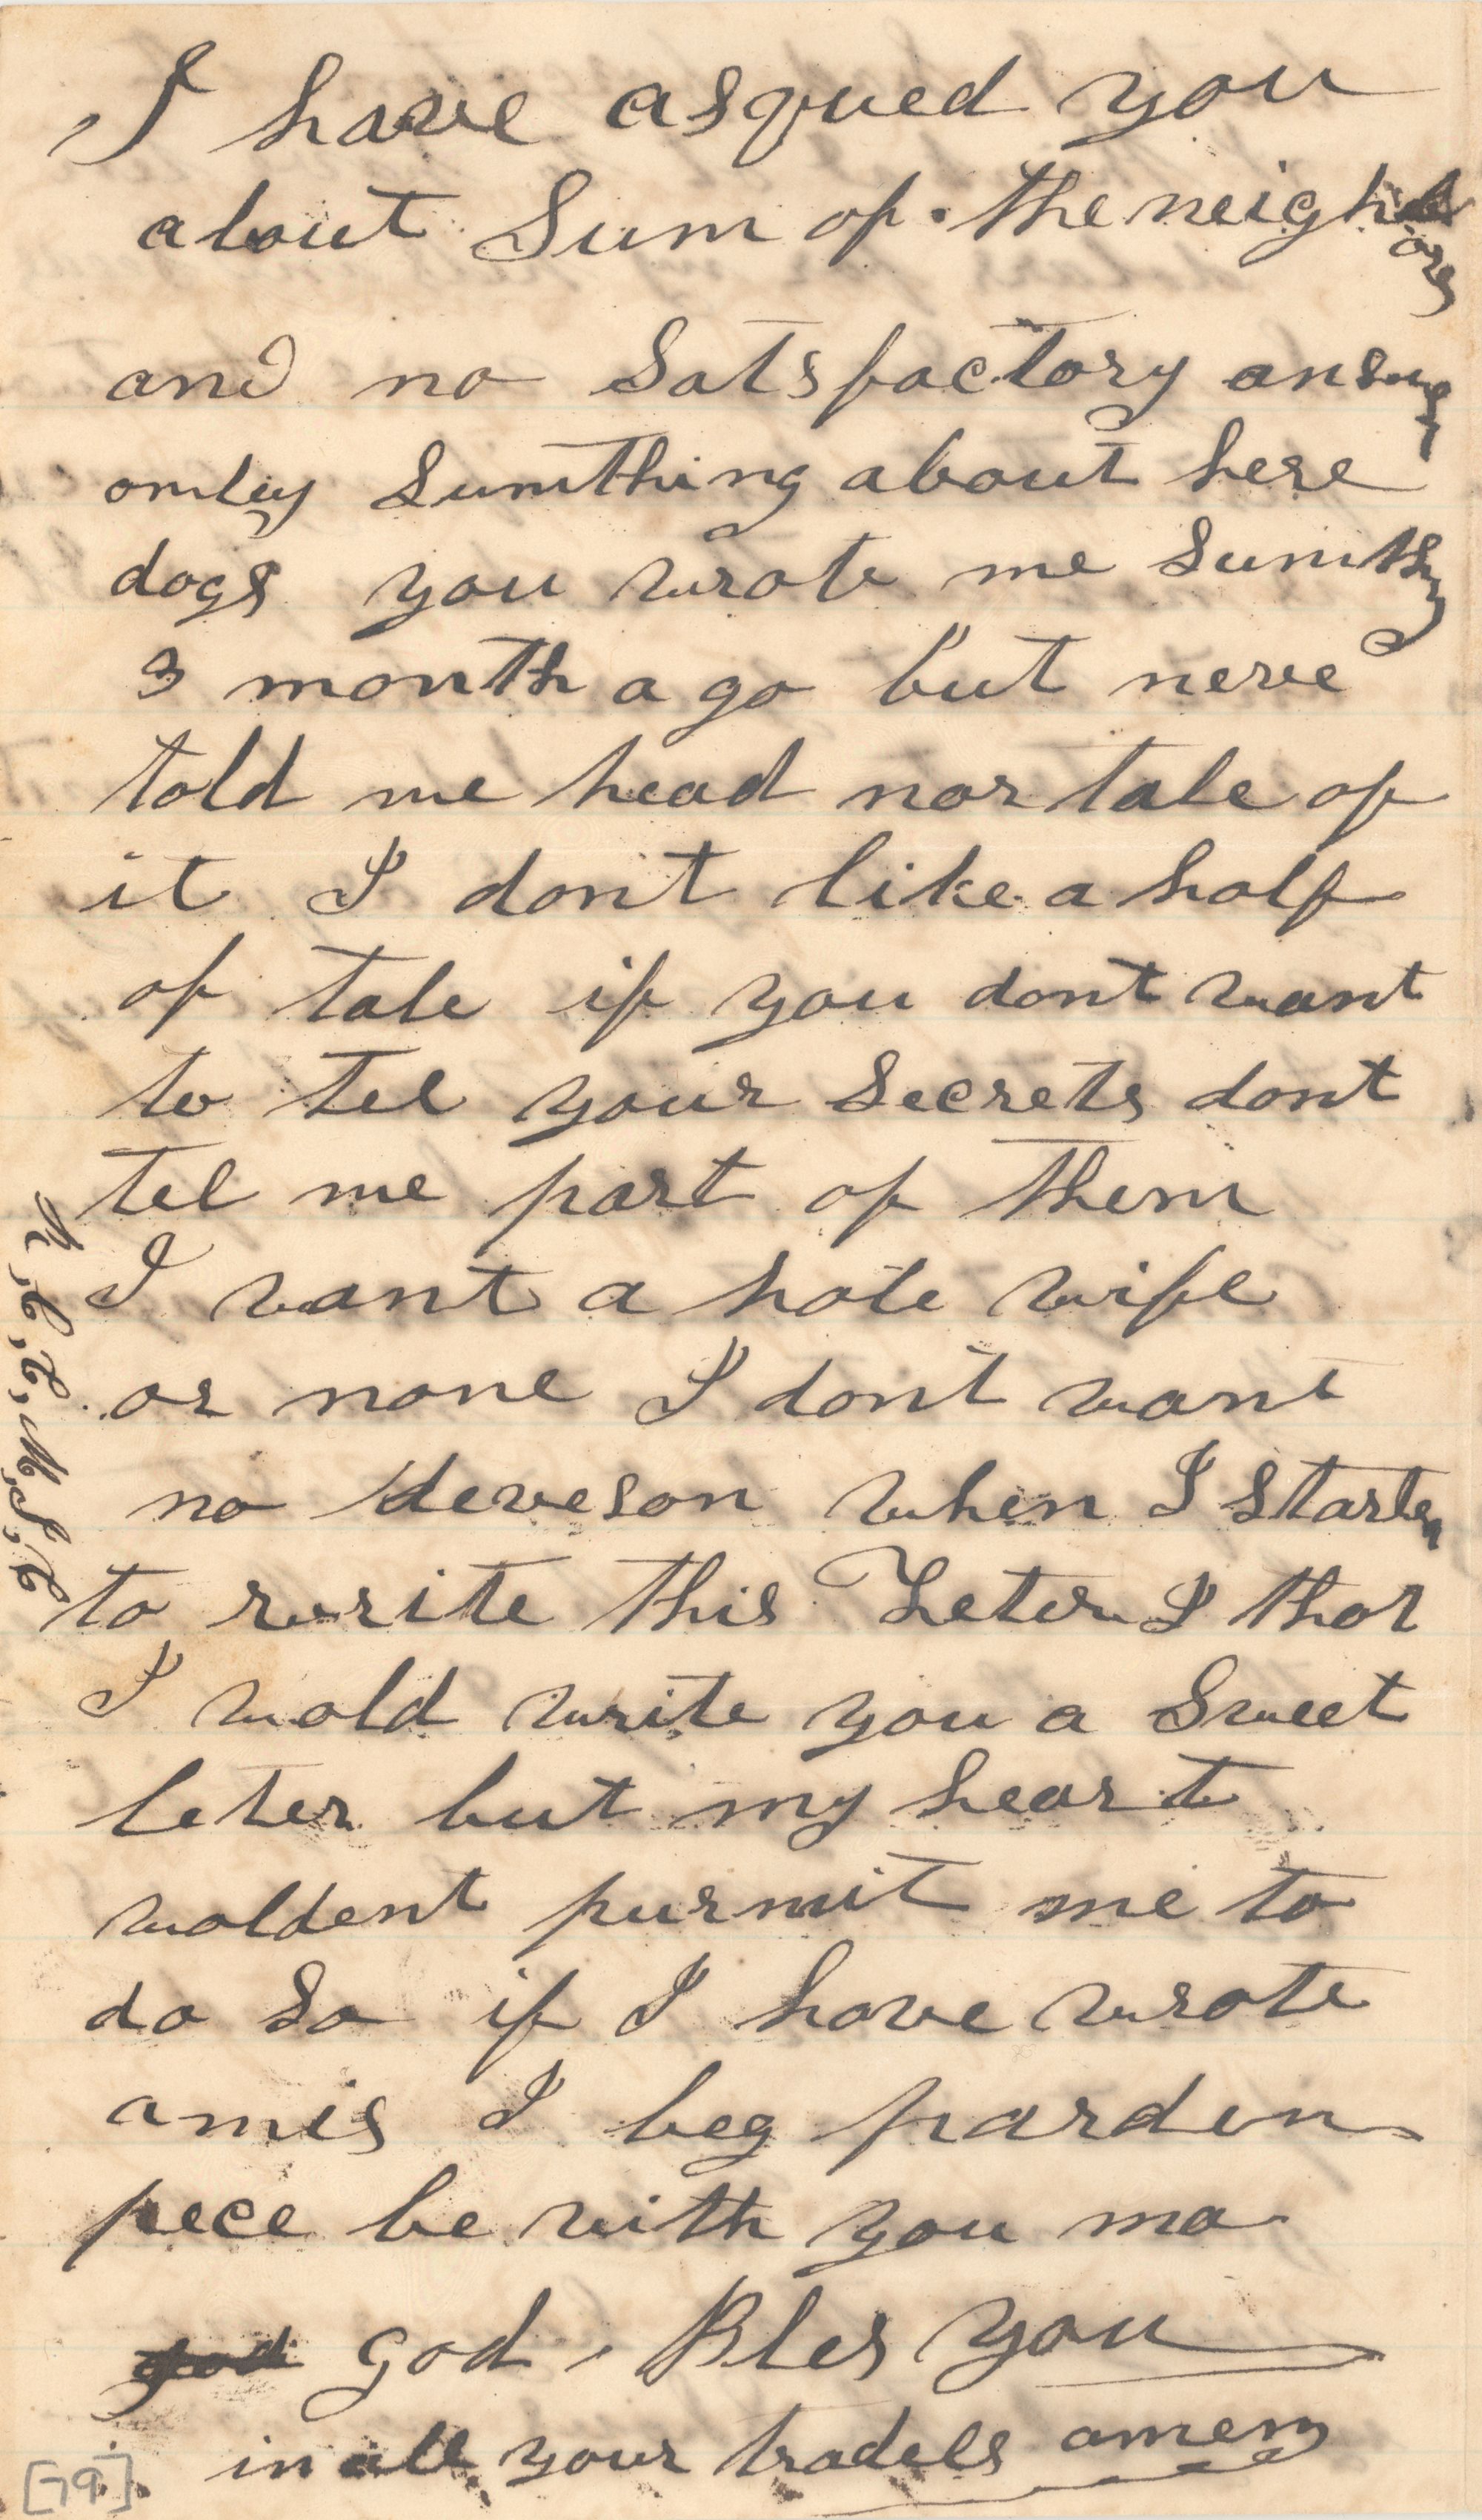 I have asqued you
about Sum of the neighbores
and no Satsfactory answer
omley Sumthing about here
dogs you wrote me Sumthing
3 month a go but neve
told me head nor tale of
it I dont like a half
of tale if you dont want
to tel your Secrets dont
tel me part of them
I want a hole wife
or none I dont want
no deveson when I Starten
to rwrite this Leter I thot
I wold write you a Sweet
leter but my heart
woldent purmit me to
do So if I have wrote
amis I beg parden
pece be with you ma
god god, Bles you
in all your tradels amen
[79]